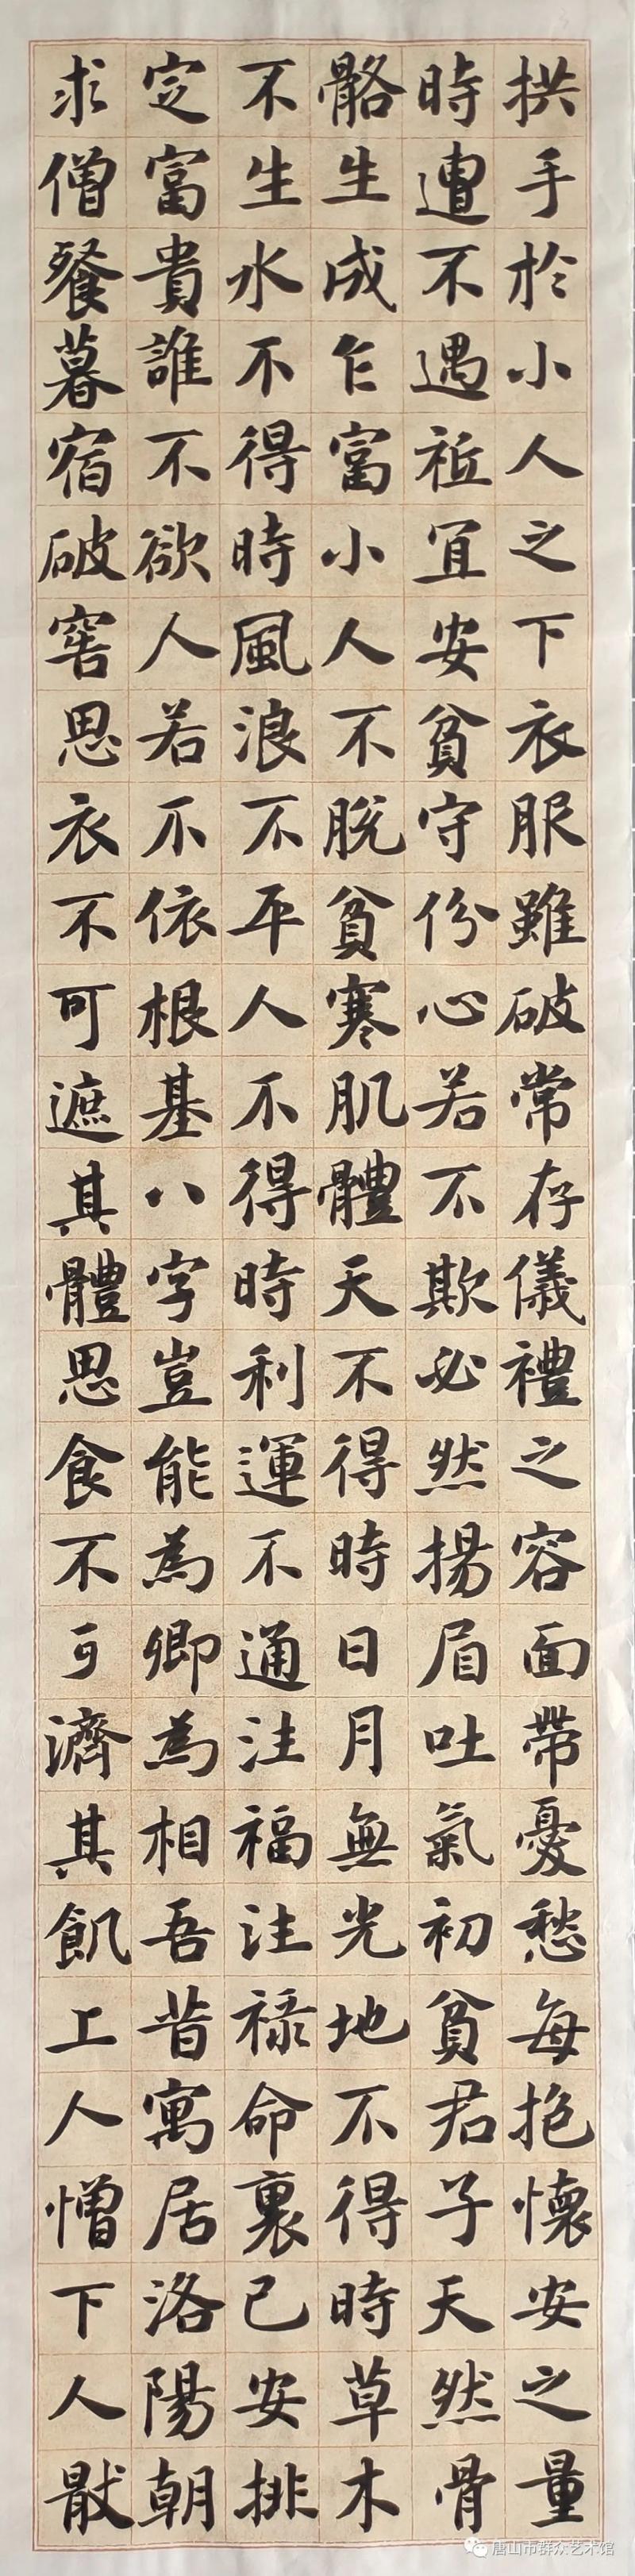 拱手於小人之下衣服雖破常存儀禮之容面帶憂愁每抱懷安之量
時遭不遇祗宜安貧守份心若不欺必然揚眉吐氣初貧君子天然骨
骼生成乍富小人不脫貧寒肌體天不得時日月無光地不得時草木
不生水不得時風浪不平人不得時利運不通注福注祿命裏已安排
定富貴誰不欲人若不依根基八字豈能為卿為相吾昔寓居洛陽朝
求僧餐暮宿破窖思衣不可遮其體思食不可濟其飢上人憎下人厭
唐山市群众艺术馆